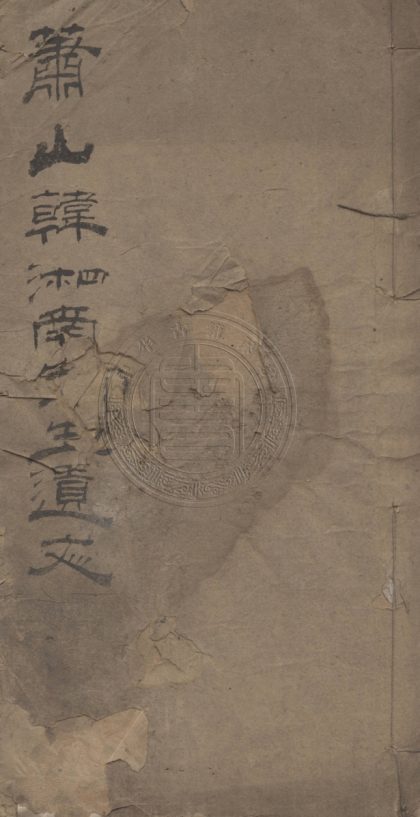 蕭山韓湘南先生遺文